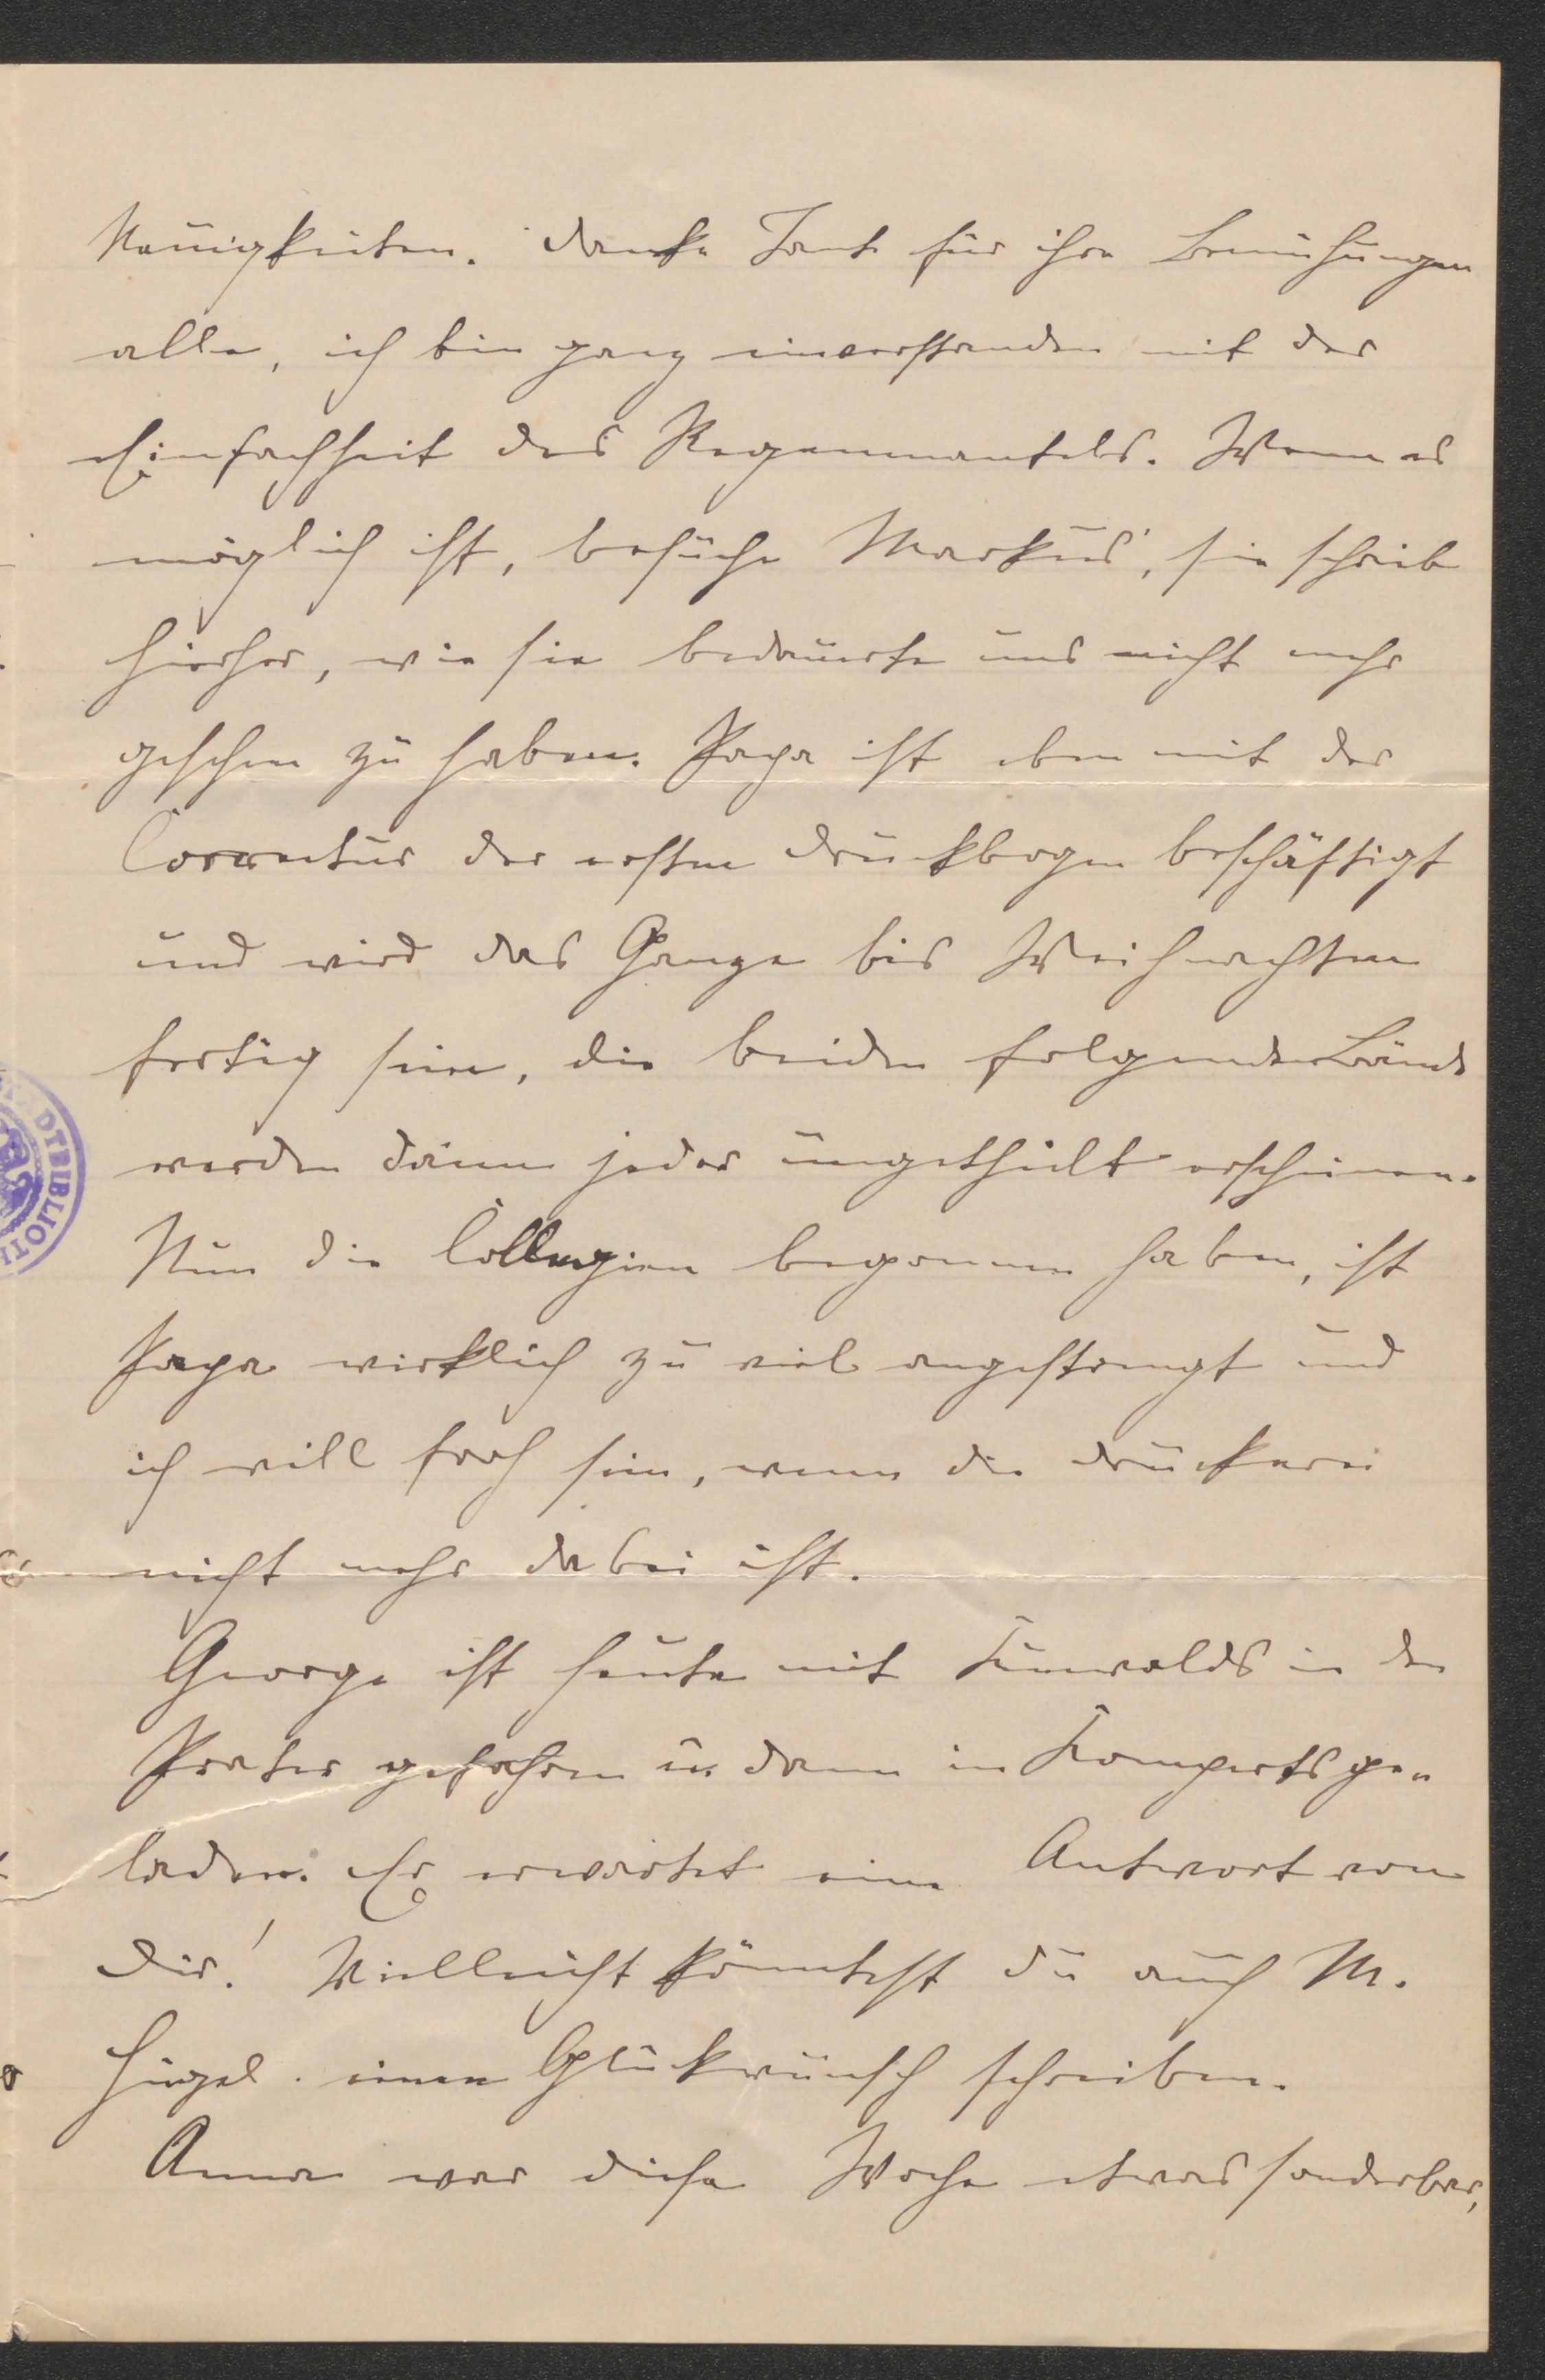 Neuigkeiten. Danke Tante für ihre Bemühungen
alle, ich bin ganz einverstanden mit der
Einfachheit des Regenmantels. Wenn es
möglich ist, besuche Markus', sie schrieb
hierher, wie sie bedauerte uns nicht mehr
gesehen zu haben. Papa ist eben mit der
Correctur der ersten Druckbogen beschäftigt
und wird das Ganze bis Weihnachten
fertig sein, die beiden folgenden Bände
werden dann jeder ungetheilt erscheinen.
Nun die Collegien begonnen haben, ist
Papa wirklich zu viel angestrengt und
ich will froh sein, wenn die Druckerei
nicht mehr dabei ist.
George ist heute mit Kuewalds in den
Prater gefahren u. dann in Komperts ge„
laden. Er erwartet eine Antwort von
Dir! Vielleicht könntest du auch M.
Hügel einen Glückwunsch schreiben.
Anna war diese Woche etwas sonderbar,